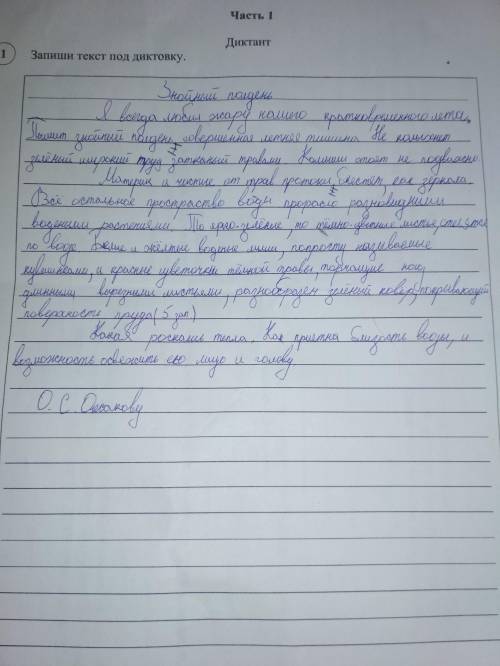 Часть 1
Диктант
1 Запиши текст под диктовку.
Знойный полдень
Я всегда любил жару нашего кратковременного лета.
Пышит знойный полдень, совершенная летняя тишина Не колыхнёт
зелёний широкий пруд затканый травами Камыши стоят не подвижно
Материк и чистые от трав протоки блестят, как зеркала.
Всё остальное простраство воды проросло разновидными
водеными растениями. То ярко-зелёные, то тёмно-цветные листья, стелятся
по воде Белые и жёлтые водные лилии, попросту называемые
кувшинками, и красные цветочки тёмной травы, торчащие над
длинными вырезными листьями, разнообразен зелёний ковёр, покривающий
поверхность пруда (5 зап)
Какая роскошь тепла. Как приятна близость воды, и
возможность освежить ею лицо и голову
О. С. Аксакову